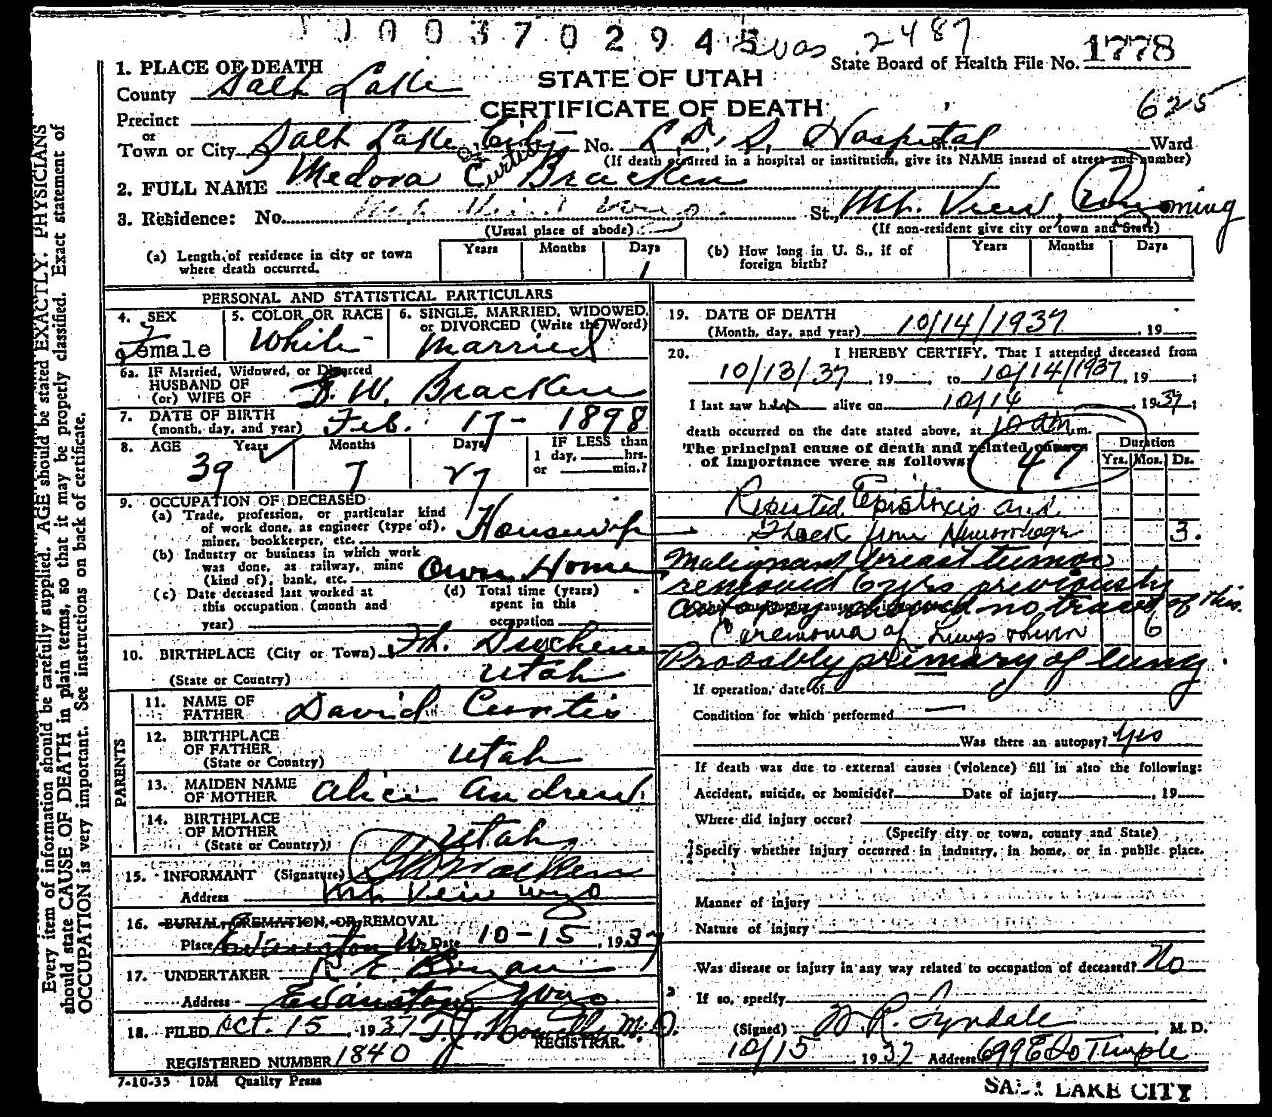 0003702945 2487
1778
State Board of Health File No.
STATE OF UTAH
CERTIFICATE OF DEATH
625
1. PLACE OF DEATH
County Salt Lake
Precinct
or
Town or City Salt Lake City No. L. D. S. Hospital St. Ward
(If death occurred in a hospital or institution, give its NAME instead of street and number)
2. FULL NAME Medora Curtis Bracken
3. Residence: No. St. Mt. View, Wyoming
(Usual place of abode) (If non-resident give city or town and State)
(a) Length of residence in city or town where death occurred. Years Months Days 1
(b) How long in U. S., if of foreign birth? Years Months Days
PERSONAL AND STATISTICAL PARTICULARS
4. SEX Female
5. COLOR OR RACE White
6. SINGLE, MARRIED, WIDOWED, or DIVORCED (Write the Word) Married
6a. IF Married, Widowed, or Divorced
HUSBAND OF
(or) WIFE OF W. Bracken
7. DATE OF BIRTH
(month, day, and year) Feb. 17 - 1898
8. AGE Years 39 Months 7 Days 27
IF LESS than
1 day, hrs.
or min.?
9. OCCUPATION OF DECEASED
(a) Trade, profession, or particular kind
of work done, as engineer (type of),
miner, bookkeeper, etc. Housewife
(b) Industry or business in which work
was done, as railway, mine
(kind of), bank, etc. Own Home
(c) Date deceased last worked at
this occupation (month and
year)
(d) Total time (years)
spent in this
occupation
10. BIRTHPLACE (City or Town) Ft. Duchesne
(State or Country) Utah
PARENTS
11. NAME OF FATHER David Curtis
12. BIRTHPLACE OF FATHER
(State or Country) Utah
13. MAIDEN NAME OF MOTHER Alice Andrew
14. BIRTHPLACE OF MOTHER
(State or Country) Utah
15. INFORMANT (Signature) Bracken
Address Mt. View Wyo
16. BURIAL, CREMATION, OR REMOVAL
Place Evanston Wy Date 10-15, 1937
17. UNDERTAKER
Address Evanston Wyo
18. FILED Oct. 15, 1937 T. J. Howells M.D.
REGISTRAR.
REGISTERED NUMBER 1840
7-10-35 10M Quality Press
19. DATE OF DEATH
(Month, day, and year) 10/14/1937, 19
20. I HEREBY CERTIFY, That I attended deceased from
10/13/37, 19 to 10/14/1937, 19 ;
I last saw her alive on 10/14 1937;
death occurred on the date stated above, at 10 am m.
The principal cause of death and related causes
of importance were as follows: 47
Duration
Yrs. Mos. Ds.
Repeated Epistaxis and
Shock from Hemorrhage 3.
Malignant breast tumor
removed 6 yrs previously
autopsy showed no trace of this.
Carcinoma of Lungs 6
Probably primary of lung.
If operation, date of
Condition for which performed
Was there an autopsy? Yes
If death was due to external causes (violence) fill in also the following:
Accident, suicide, or homicide? Date of injury 19
Where did injury occur?
(Specify city or town, county and State)
Specify whether injury occurred in industry, in home, or in public place.
Manner of injury
Nature of injury
Was disease or injury in any way related to occupation of deceased? No
If so, specify
(Signed) W. R. Tyndale M. D.
10/15, 1937 Address 699 E So Temple
SALT LAKE CITY
Every item of information should be carefully supplied. AGE should be stated EXACTLY. PHYSICIANS
should state CAUSE OF DEATH in plain terms, so that it may be properly classified. Exact statement of
OCCUPATION is very important. See instructions on back of certificate.